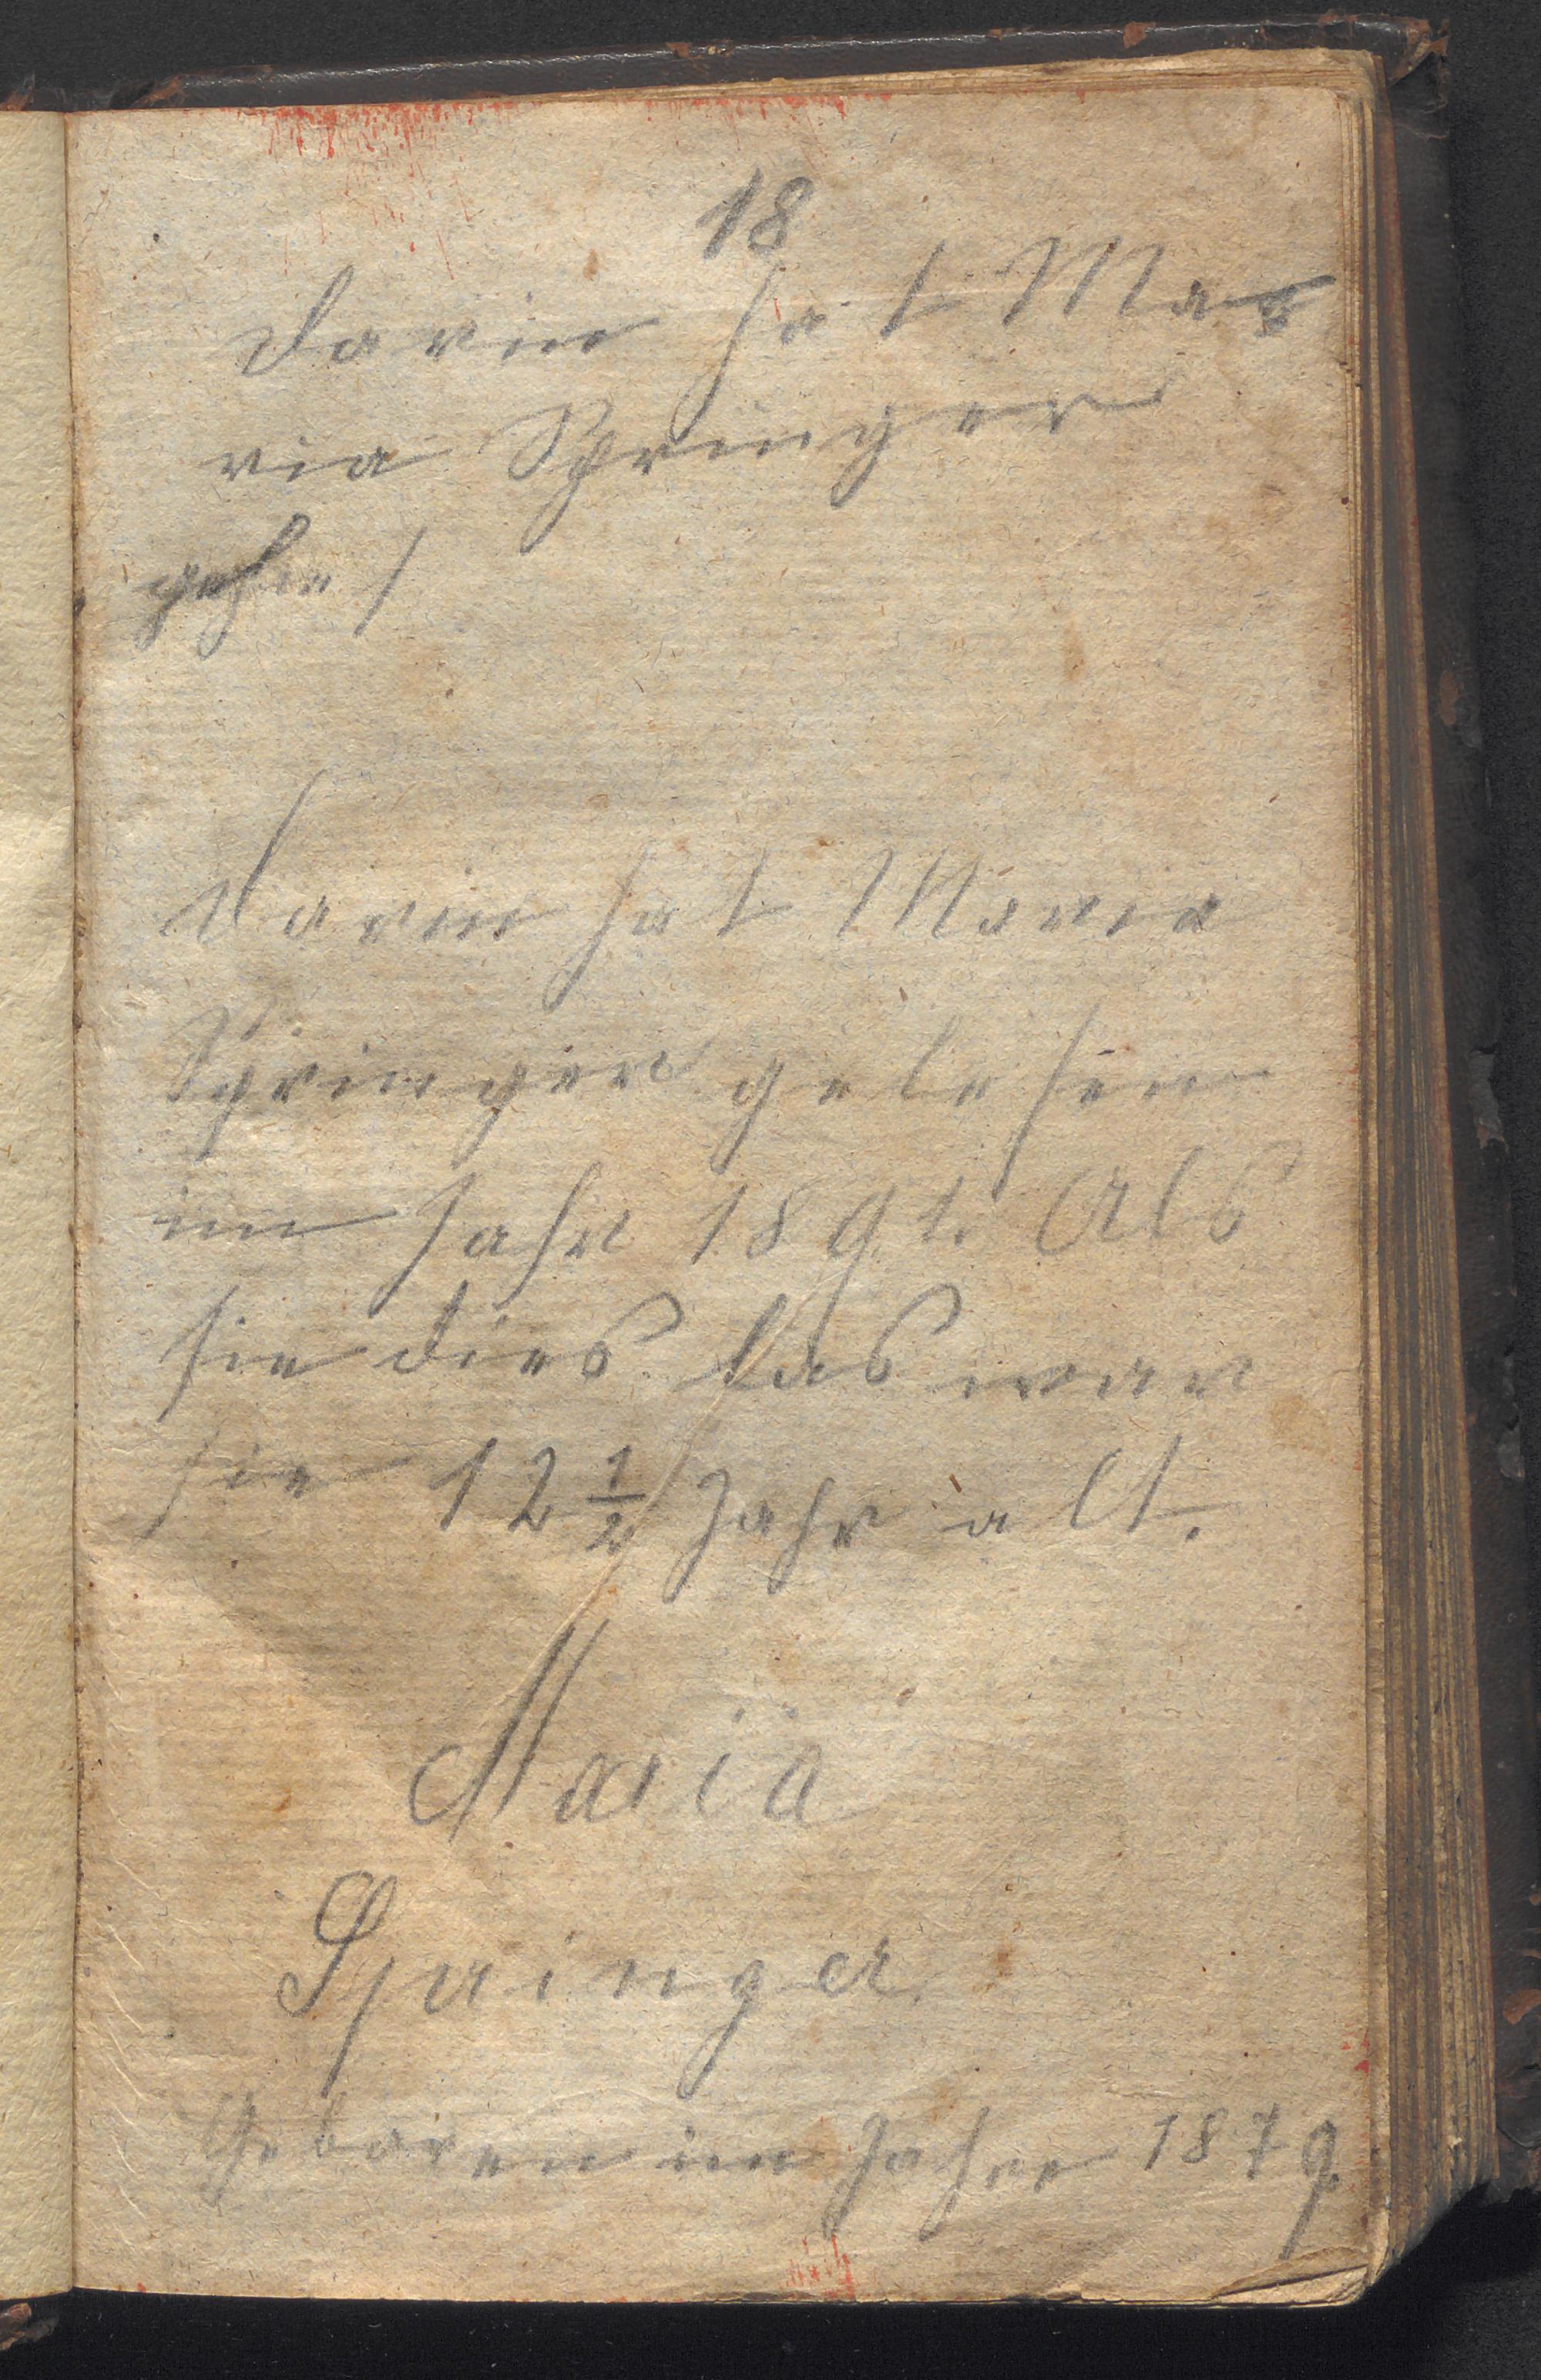 18
Darin hat Ma=
ria Springer
Darin hat Maria
Springer gelesen
im Jahr 1891. Als
sie dies las war
sie 12 1/2 Jahr alt.
Maria
Springer
Geboren im Jahre 1879